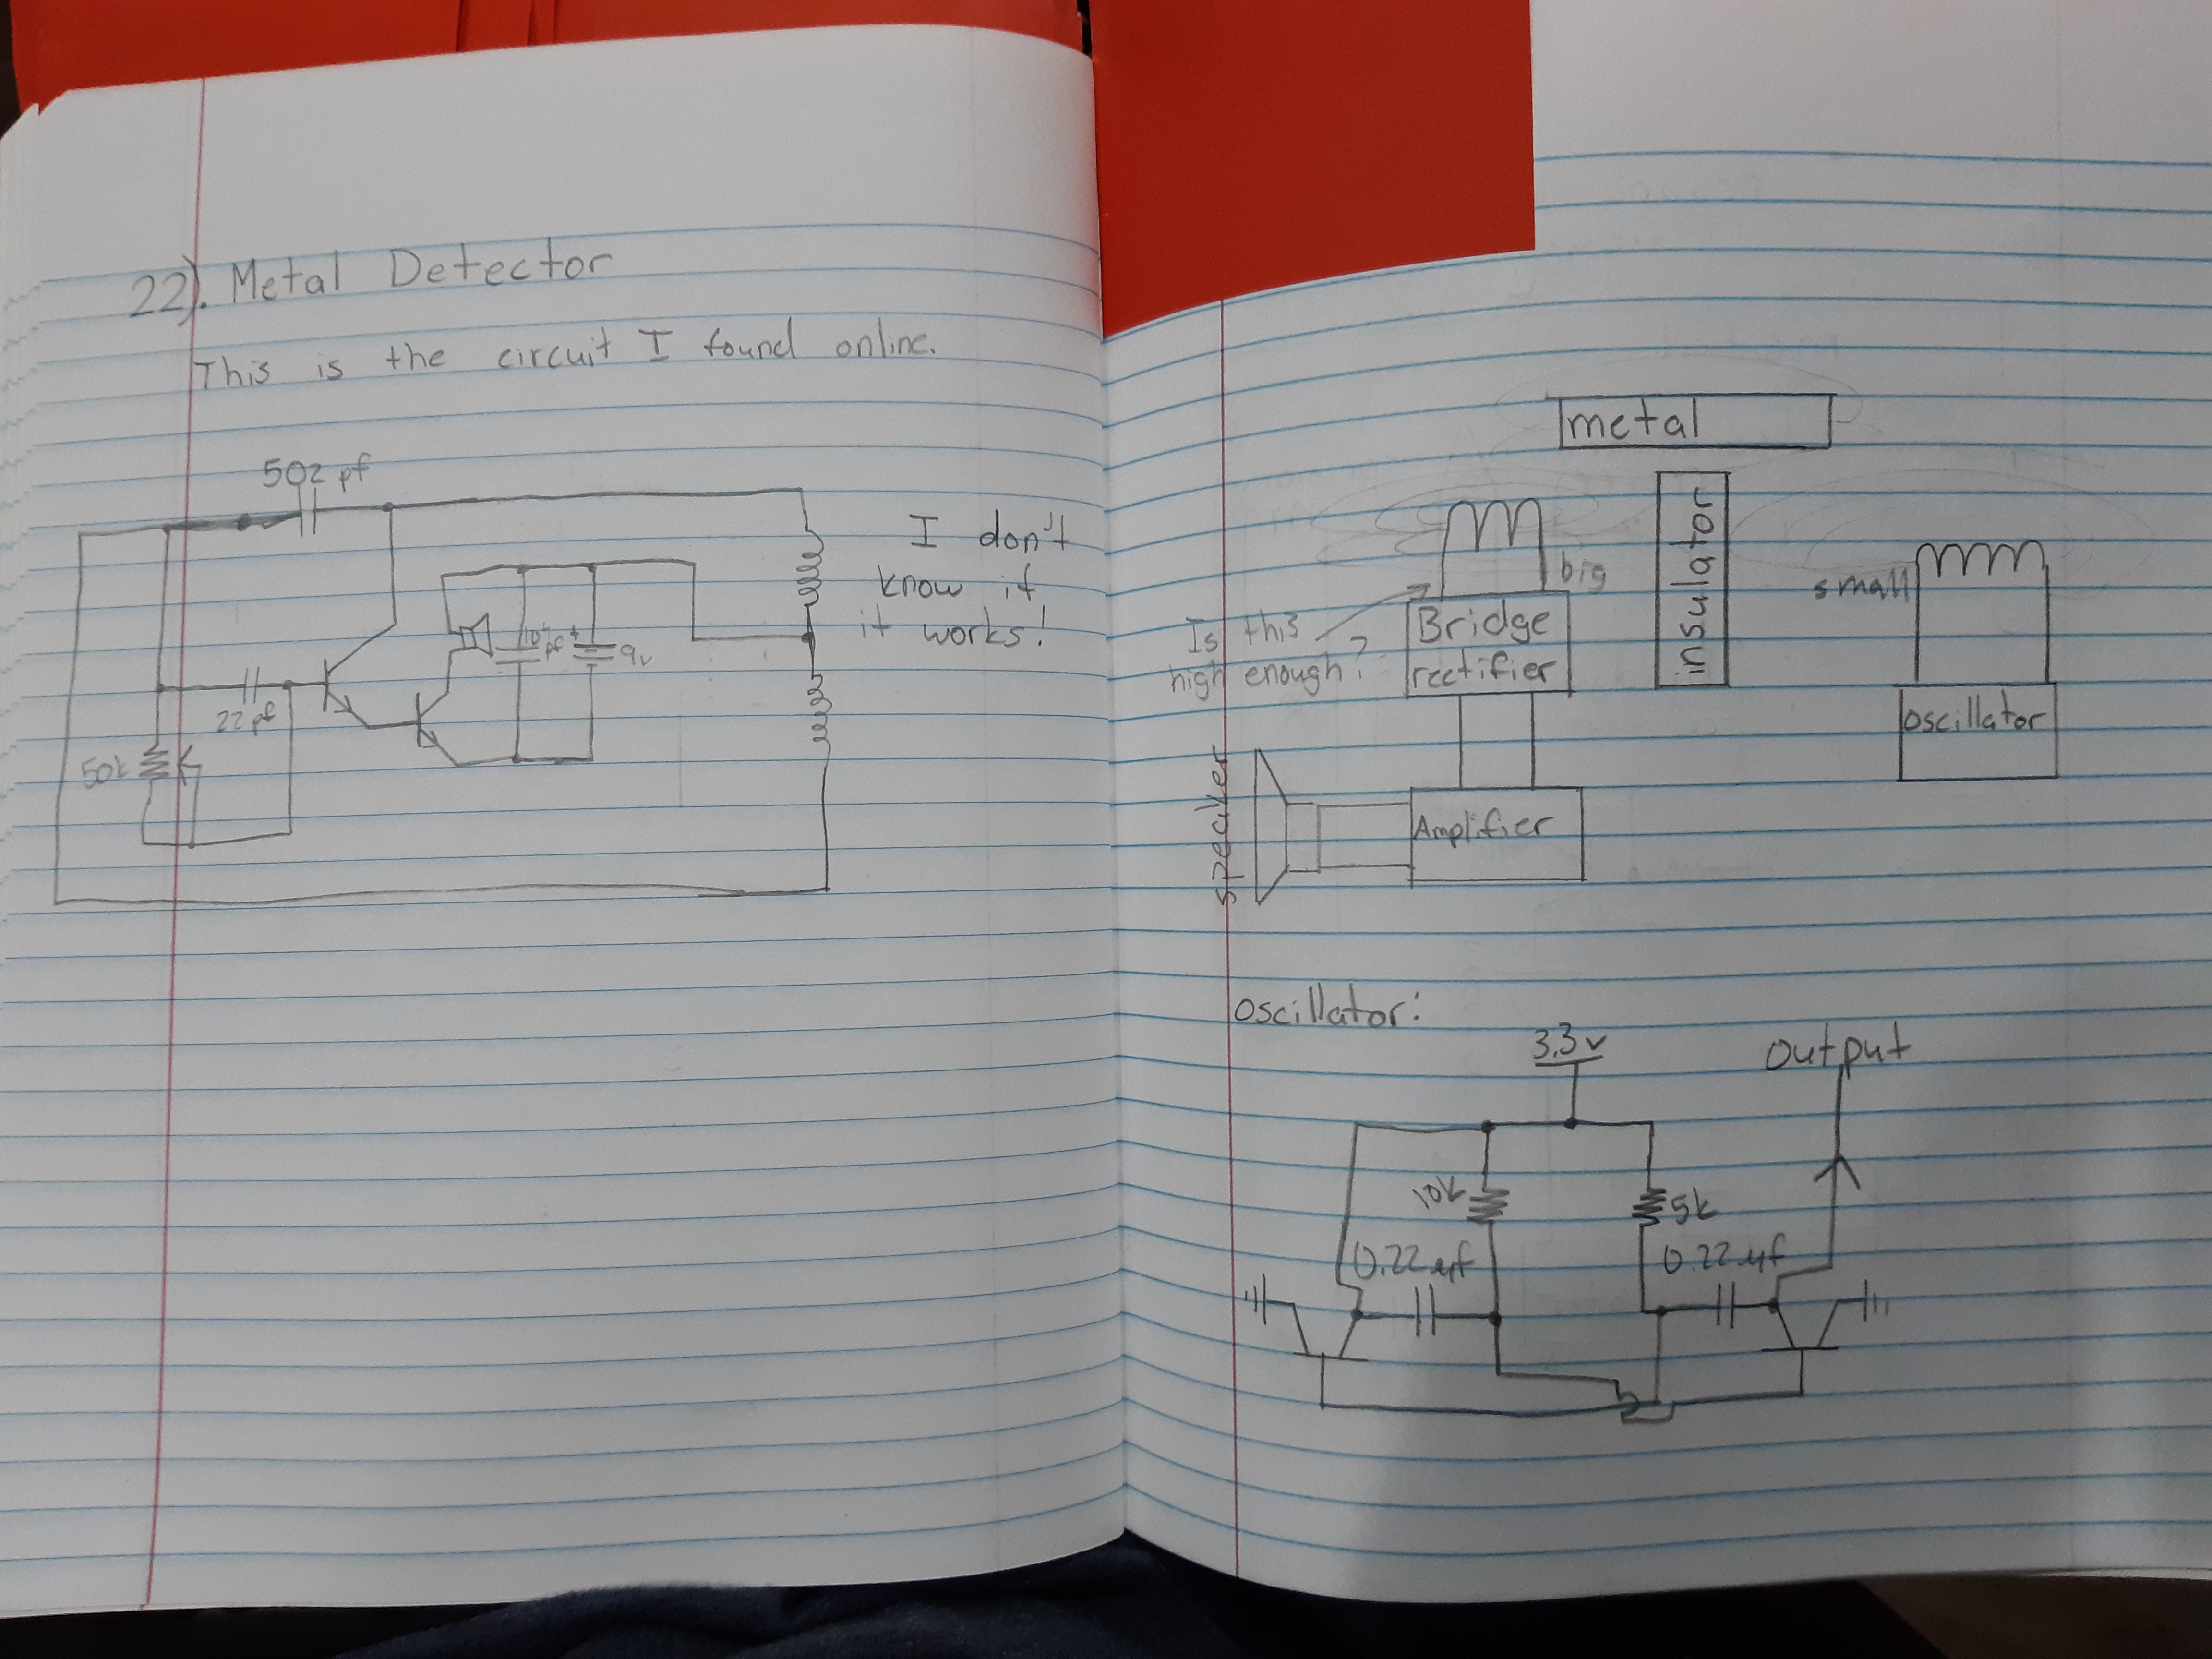 22). Metal Detector
This is the circuit I found online.
502 pf
50k
22 pf
10 pf
+
+
9v
I don't
know if
it works!
metal
insulator
big
small
Is this
high enough?
Bridge
rectifier
Oscillator
Amplifier
speaker
Oscillator:
3.3v
Output
10k
5k
0.22uf
0.22uf